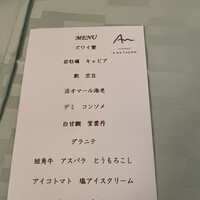 MENU
ズワイ蟹
岩牡蠣　キャビア
鮑　空豆
活オマール海老
デミ　コンソメ
白甘鯛　紫雲丹
グラニテ
短角牛　アスパラ　とうもろこし
アイコトマト　塩アイスクリーム
An